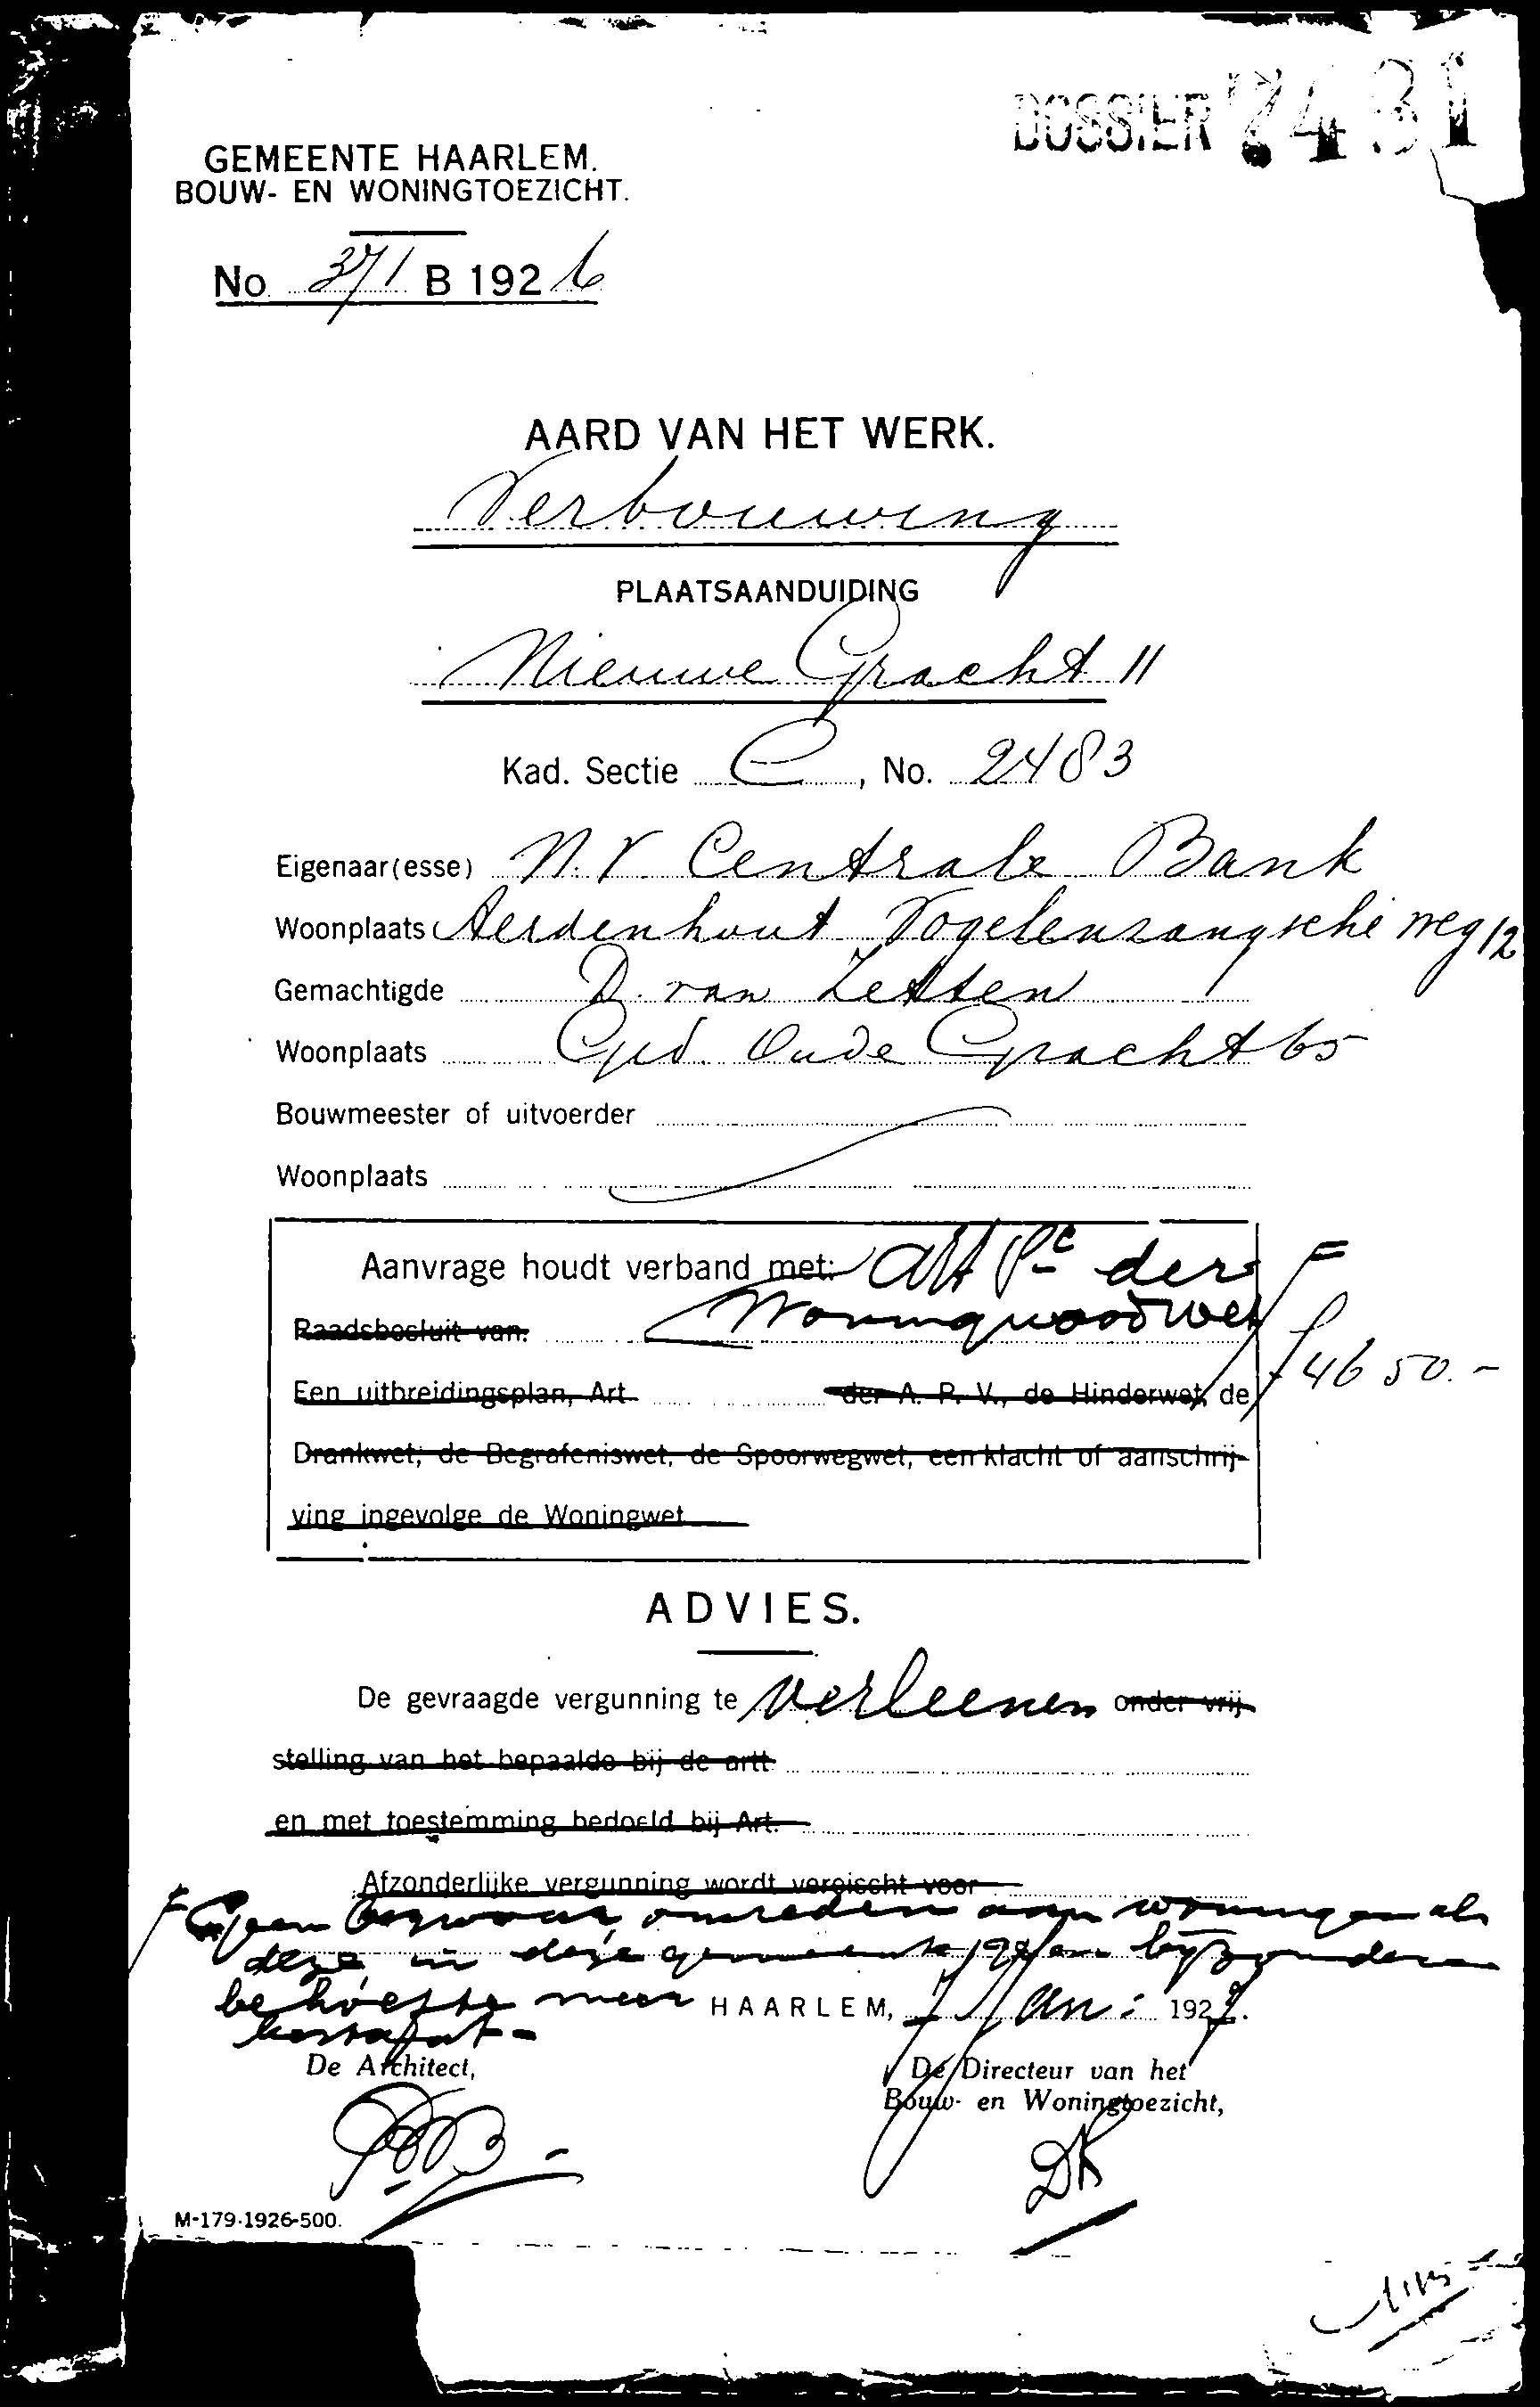 DOSSIER 2431
GEMEENTE HAARLEM.
BOUW- EN WONINGTOEZICHT.
No. 371 B 1926
AARD VAN HET WERK.
Verbouwing
PLAATSAANDUIDING
Nieuwe Gracht 11
Kad. Sectie C, No. 2483
Eigenaar(esse) N.V. Centrale Bank
Woonplaats Aerdenhout Vogelenzangsche weg 12
Gemachtigde D. van Zetten
Woonplaats Ged. Oude Gracht 65
Bouwmeester of uitvoerder
Woonplaats
Aanvrage houdt verband met: Art 1c der F
Raadsbesluit van: Woningnoodwet
f 4650.-
Een uitbreidingsplan, Art. der A. P. V., de Hinderwet, de
Drankwet, de Begrafeniswet, de Spoorwegwet, een klacht of aanschrij-
ving ingevolge de Woningwet
ADVIES.
De gevraagde vergunning te verleenen onder vrij-
stelling van het bepaalde bij de artt.
en met toestemming bedoeld bij Art.
Afzonderlijke vergunning wordt vereischt voor
F Geen bezwaar omreden aan woningen als
deze in deze gemeente geen bijzondere
behoefte meer
HAARLEM, 7 Jan: 1927.
bestaat-
De Architect,
De Directeur van het
Bouw- en Woningtoezicht,
DK
M-179-1926-500.